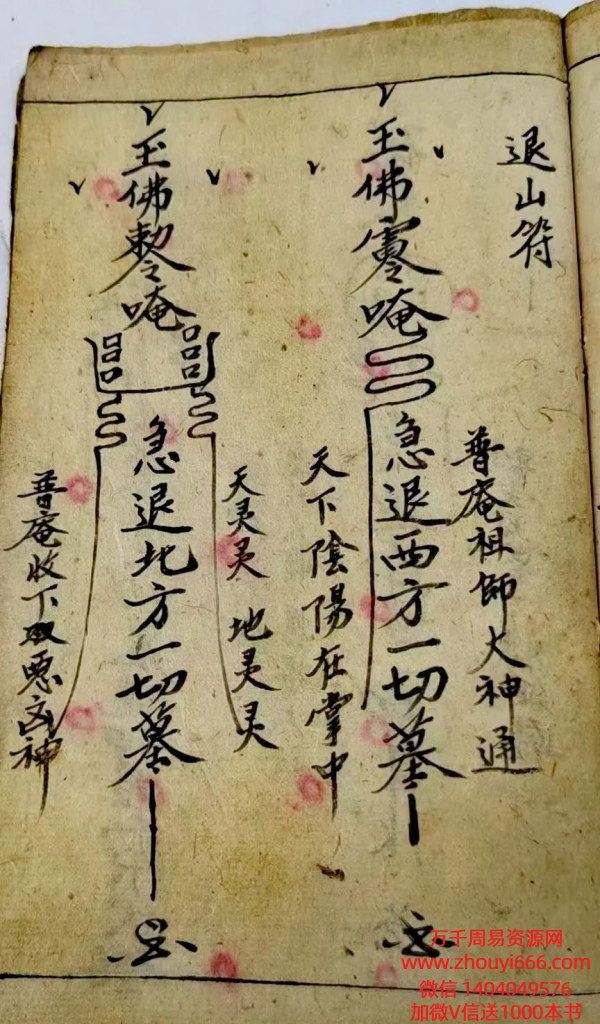 退山符
普庵祖師大神通
玉佛唵
急退西方一切墓
天下陰陽在掌中
天灵灵 地灵灵
玉佛勅令唵
急退北方一切墓
普庵收下恶凶神
万千周易资源网
www.zhouyi666.com
微信 1404049576
加微V信送1000本书